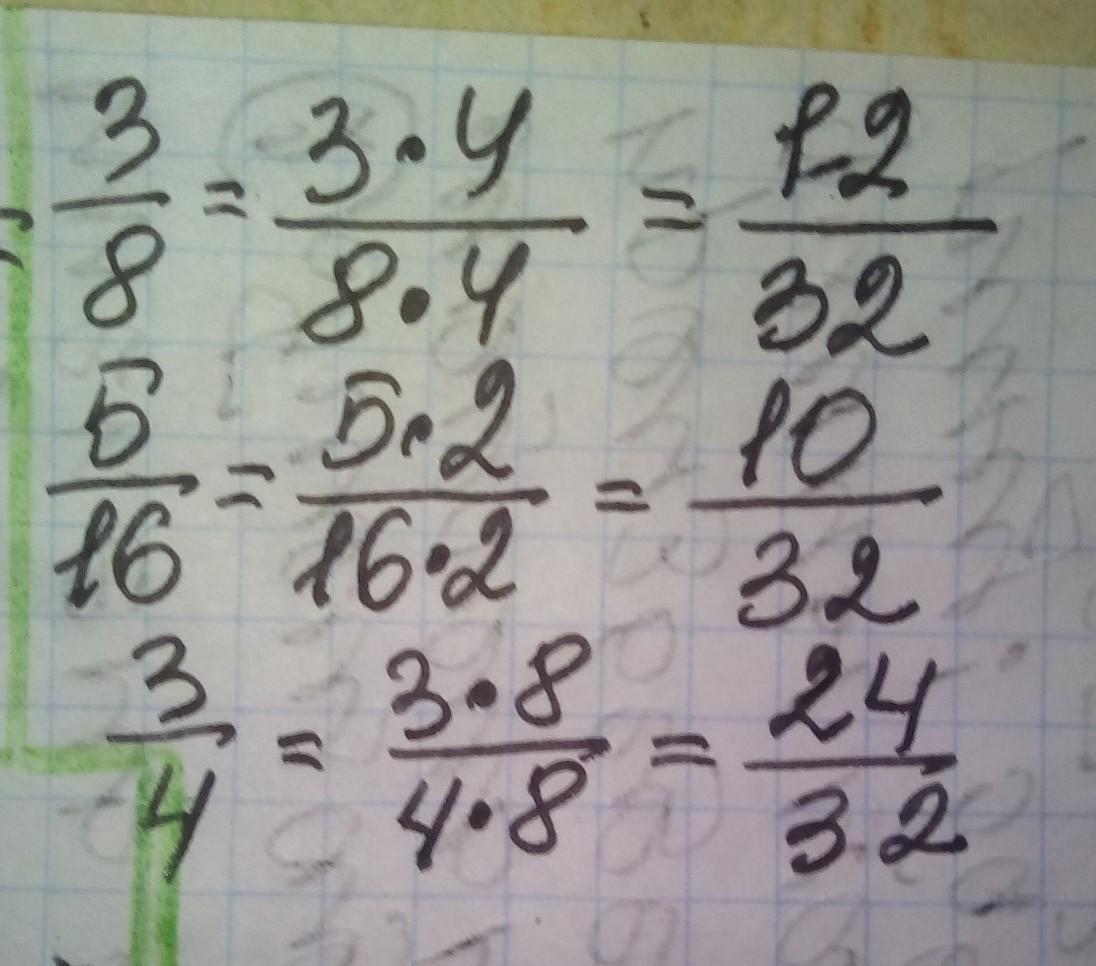 3/8 = 3·4/8·4 = 12/32
5/16 = 5·2/16·2 = 10/32
3/4 = 3·8/4·8 = 24/32